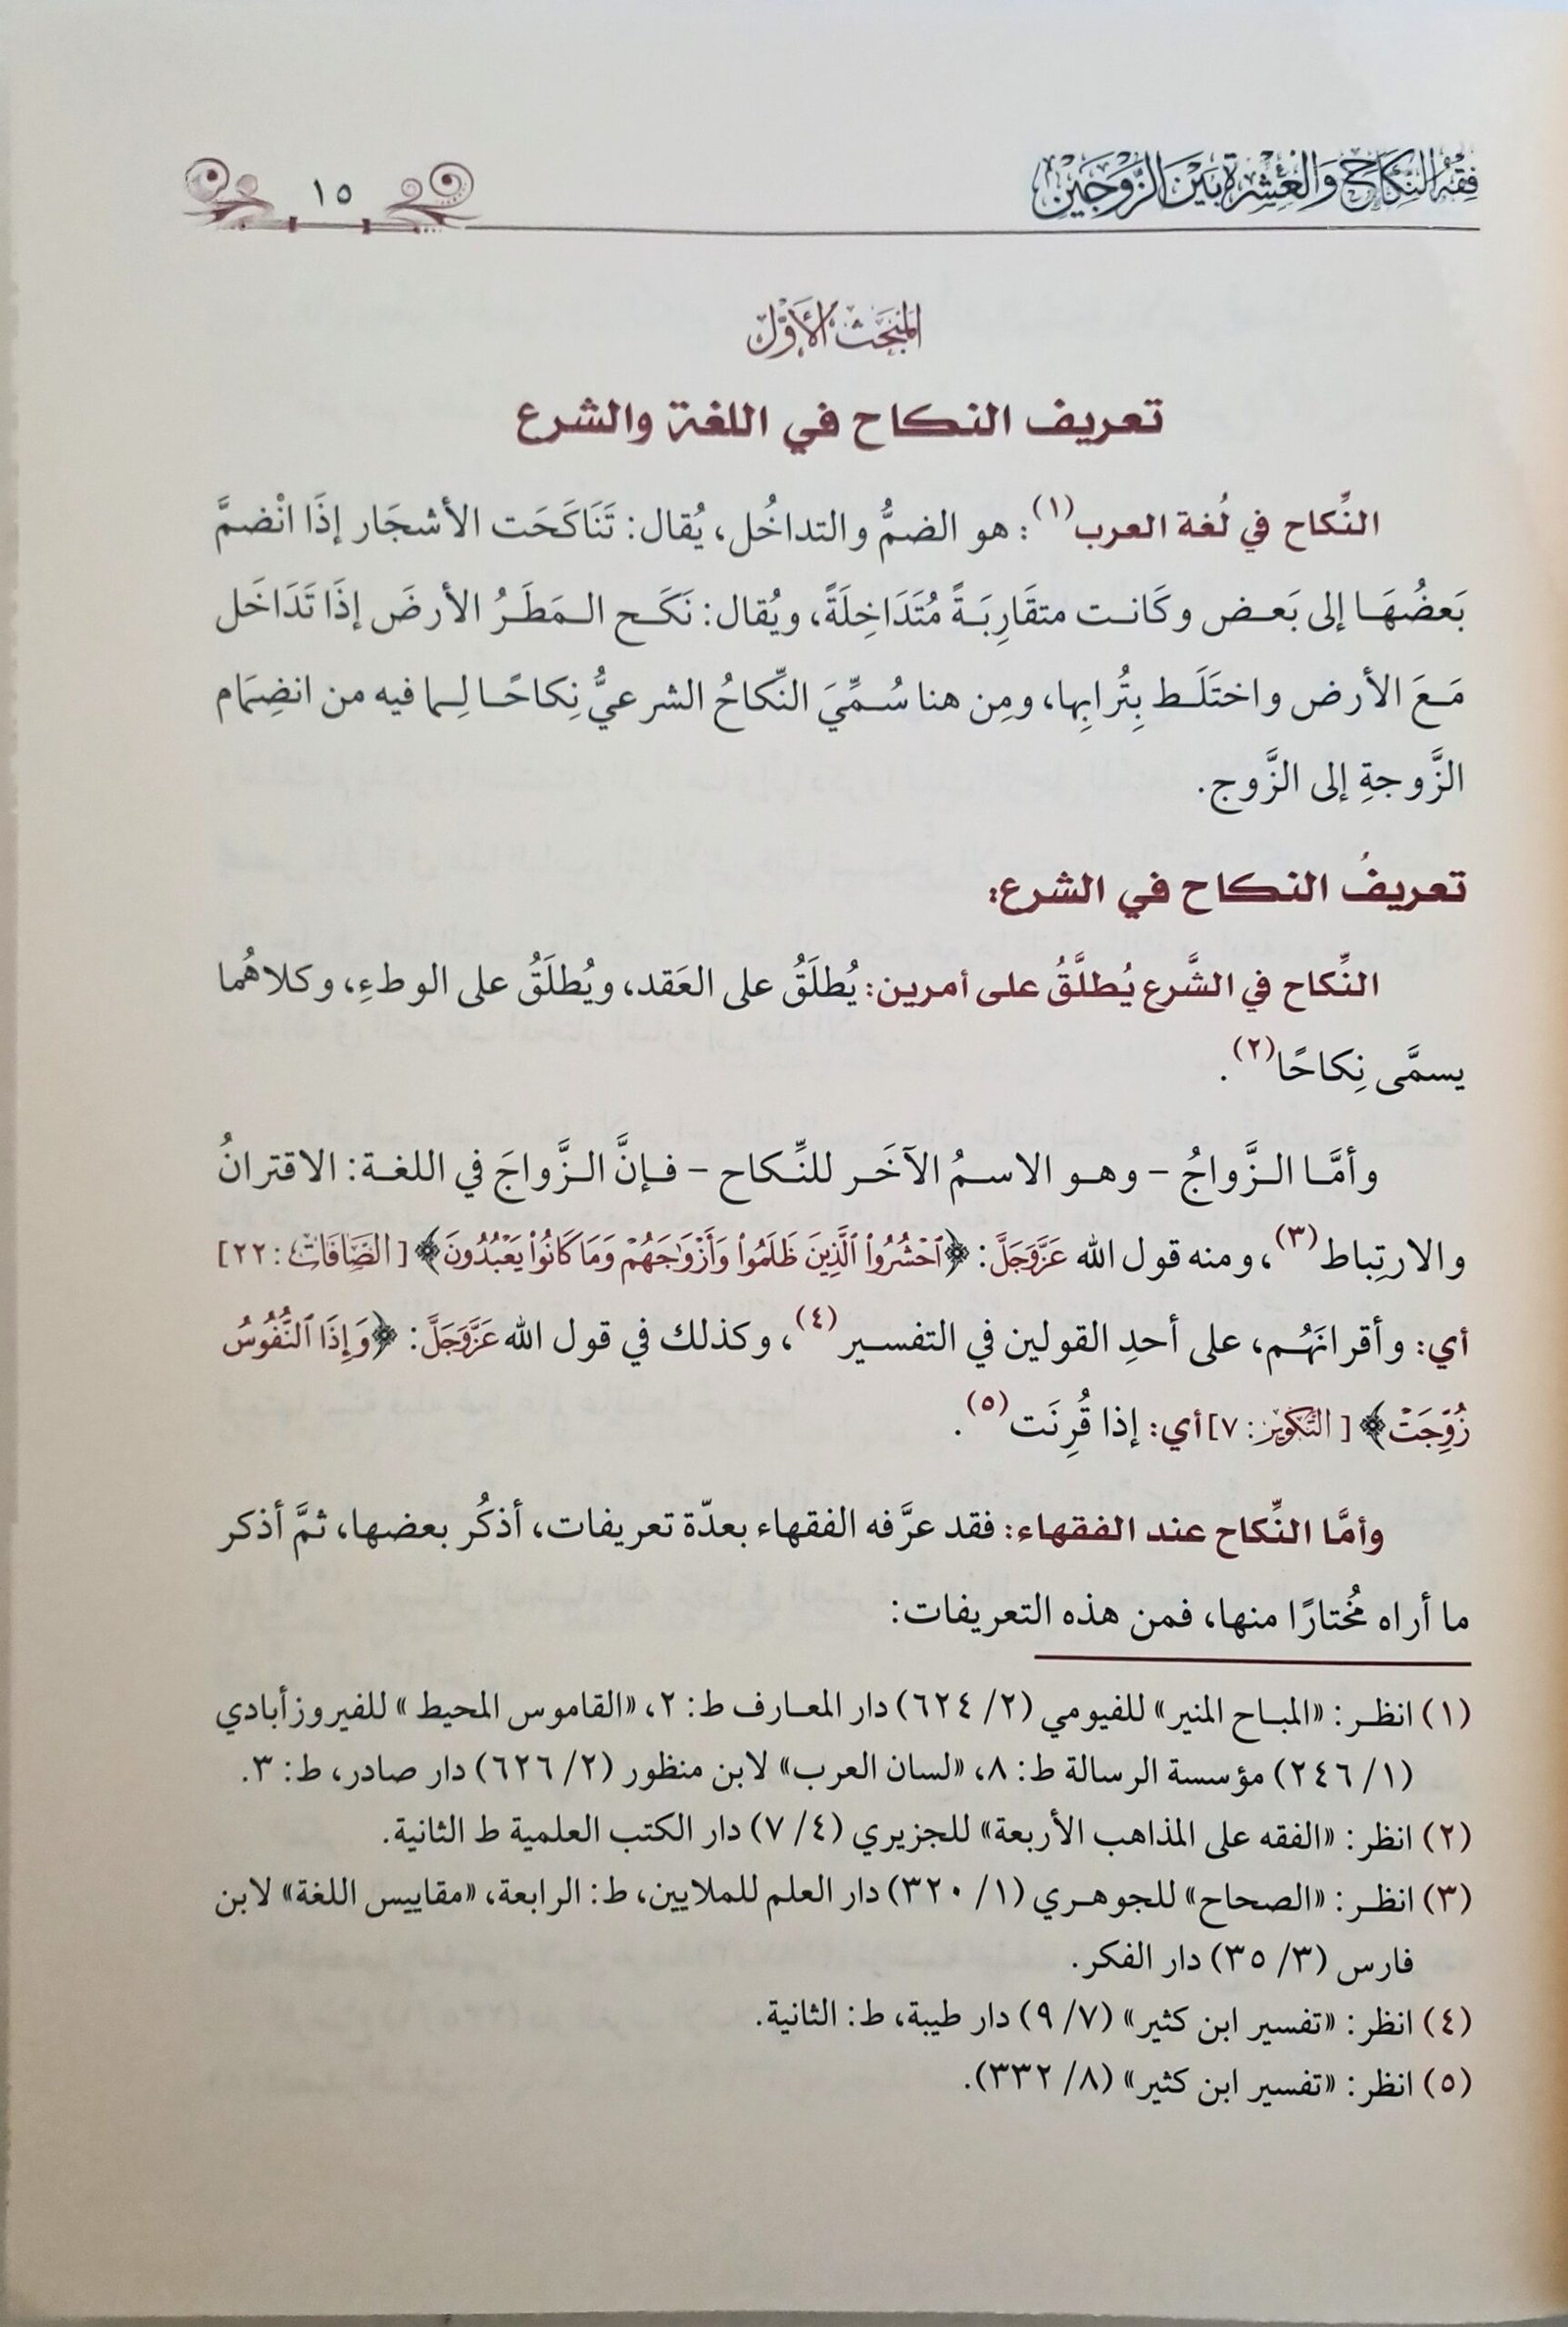 فِقْهُ النِّكَاحِ وَالْعِشْرَةِ بَيْنَ الزَّوْجَيْنِ
١٥
المَبْحَثُ الأَوَّلُ
تعريف النكاح في اللغة والشرع
النِّكاح في لُغة العرب(١): هو الضمُّ والتداخُل، يُقال: تَنَاكَحَت الأشجَار إذَا انْضمَّ
بَعضُهَا إلى بَعض وكَانت متقَارِبَةً مُتَدَاخِلَةً، ويُقال: نَكَح المَطَرُ الأرضَ إذَا تَدَاخَل
مَعَ الأرض واختَلَط بِتُرابِها، ومِن هنا سُمِّيَ النِّكاحُ الشرعيُّ نِكاحًا لِما فيه من انضِمَام
الزَّوجةِ إلى الزَّوج.
تعريفُ النكاح في الشرع:
النِّكاح في الشَّرع يُطلَّقُ على أمرين: يُطلَقُ على العَقد، ويُطلَقُ على الوطءِ، وكلاهُما
يسمَّى نِكاحًا(٢).
وأمَّا الزَّواجُ - وهو الاسمُ الآخَر للنِّكاح - فإنَّ الزَّواجَ في اللغة: الاقترانُ
والارتِباط(٣)، ومنه قول الله عَزَّوَجَلَّ: ﴿ٱحْشُرُوا۟ ٱلَّذِينَ ظَلَمُوا۟ وَأَزْوَٰجَهُمْ وَمَا كَانُوا۟ يَعْبُدُونَ﴾ [الصَّافَات: ٢٢]
أي: وأقرانَهُم، على أحدِ القولين في التفسير(٤)، وكذلك في قول الله عَزَّوَجَلَّ: ﴿وَإِذَا ٱلنُّفُوسُ
زُوِّجَتْ﴾ [التكوير: ٧] أي: إذا قُرِنَت(٥).
وأمَّا النِّكاح عند الفقهاء: فقد عرَّفه الفقهاء بعدّة تعريفات، أذكُر بعضها، ثمَّ أذكر
ما أراه مُختارًا منها، فمن هذه التعريفات:
(١) انظر: «المباح المنير» للفيومي (٢/ ٦٢٤) دار المعارف ط: ٢، «القاموس المحيط» للفيروزأبادي
(١/ ٢٤٦) مؤسسة الرسالة ط: ٨، «لسان العرب» لابن منظور (٢/ ٦٢٦) دار صادر، ط: ٣.
(٢) انظر: «الفقه على المذاهب الأربعة» للجزيري (٤/ ٧) دار الكتب العلمية ط الثانية.
(٣) انظر: «الصحاح» للجوهري (١/ ٣٢٠) دار العلم للملايين، ط: الرابعة، «مقاييس اللغة» لابن
فارس (٣/ ٣٥) دار الفكر.
(٤) انظر: «تفسير ابن كثير» (٧/ ٩) دار طيبة، ط: الثانية.
(٥) انظر: «تفسير ابن كثير» (٨/ ٣٣٢).